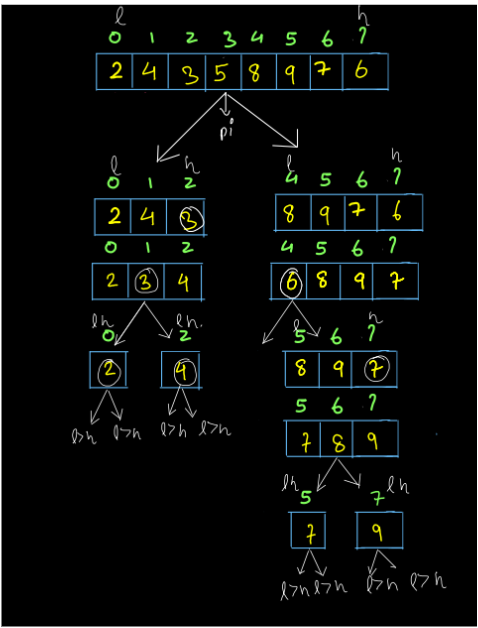 l h
0 1 2 3 4 5 6 7
2 4 3 5 8 9 7 6
pi
l h
0 1 2
2 4 3
0 1 2
2 3 4
lh lh.
0 2
2 4
l>h l>h l>h l>h
l h
4 5 6 7
8 9 7 6
4 5 6 7
6 8 9 7
l h
5 6 7
8 9 7
5 6 7
7 8 9
lh lh
5 7
7 9
l>h l>h l>h l>h